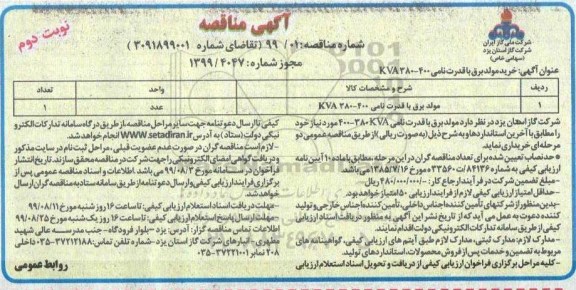 آگهی مناقصه
نوبت دوم
شرکت ملی گاز ایران
شرکت گاز استان یزد
(سهامی خاص)
شماره مناقصه: ۰۱/ ۹۹ (تقاضای شماره ۳۰۹۱۸۹۹۰۰۱)
مجوز شماره: ۱۳۹۹/۴۰۴۷
عنوان آگهی: خرید مولد برق با قدرت نامی ۴۰۰-۳۸۰ KVA
ردیف شرح و مشخصات کالا واحد تعداد
۱ مولد برق با قدرت نامی ۴۰۰-۳۸۰ KVA عدد ۱
شرکت گاز استان یزد در نظر دارد مولد برق با قدرت نامی ۴۰۰-۳۸۰ KVA مورد نیاز خود
را مطابق با آخرین استانداردها و به شرح ذیل (به صورت ریالی) از طریق مناقصه عمومی دو
مرحله ای خریداری نماید.
• حد نصاب تعیین شده برای تعداد مناقصه گران در این مرحله مطابق با ماده ۱۰ آیین نامه
ارزیابی کیفی به شماره ۸۴۱۳۶/ت ۳۳۵۶۰ ه مورخ ۱۳۸۵/۷/۱۶ می باشد.
- مبلغ تضمین شرکت در فرآیند ارجاع کار: ۴۸۰/۰۰۰/۰۰۰/- ریال
- حداقل امتیاز ارزیابی کیفی لازم از فرایند ارزیابی ۵۰ امتیاز خواهد بود.
-بدین منظور از شرکتهای تأمین کننده داخلی، تأمین کننده اجناس خارجی و تولید
کننده دعوت به عمل می آید که از تاریخ نشر این آگهی به منظور دریافت اسناد ارزیابی
کیفی از طریق سامانه تدارکات الکترونیکی دولت اقدام نمایند.
- مدارک لازم: مدارک ثبتی، مدارک لازم طبق آیتم های ارزیابی کیفی، گواهینامه های
مربوط به تضمین و خدمات پس از فروش محصولات، استانداردهای تولید.
- کلیه مراحل برگزاری فراخوان ارزیابی کیفی از دریافت و تحویل اسناد استعلام ارزیابی
کیفی تا ارسال دعوتنامه جهت سایر مراحل مناقصه از طریق درگاه سامانه تدارکات الکترو
نیکی دولت (ستاد) به آدرس WWW.setadiran.ir انجام خواهد شد.
- لازم است مناقصه گران در صورت عدم عضویت قبلی، مراحل ثبت نام در سایت مذکور
و دریافت گواهی امضای الکترونیکی را جهت شرکت در مناقصه محقق سازند. تاریخ انتشار
فراخوان در سامانه مورخ ۹۹/۰۸/۳ می باشد. اطلاعات و اسناد مناقصه عمومی پس از
برگزاری فرایند ارزیابی کیفی و ارسال دعوتنامه از طریق سامانه ستاد به مناقصه گران ارسال
خواهد شد.
-مهلت دریافت اسناد استعلام ارزیابی کیفی: تا ساعت ۱۶ روز شنبه مورخ ۹۹/۰۸/۱۰
-مهلت ارسال پاسخ استعلام ارزیابی کیفی: تا ساعت ۱۶ روز یک شنبه مورخ ۹۹/۰۸/۲۵
اطلاعات تماس مناقصه گزار: آدرس: یزد -بلوار فرودگاه- جنب مدرسه عالی شهید
مطهری- انبارهای شرکت گاز استان یزد- شماره تلفن تماس: ۳۷۲۱۲۱۸۸-۰۳۵ داخلی
۲۰۸ نمابر ۳۷۲۲۱۰۰۱-۰۳۵
روابط عمومی